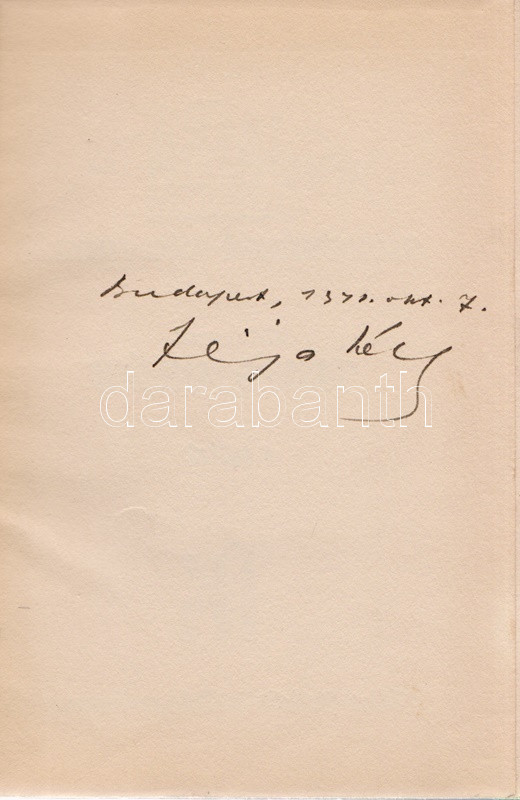 Budapest, 1971. okt. 7.
Féja Géza
darabanth